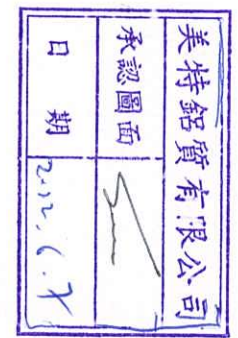 美特鋁質有限公司
承認圖面
日期 2022.6.7